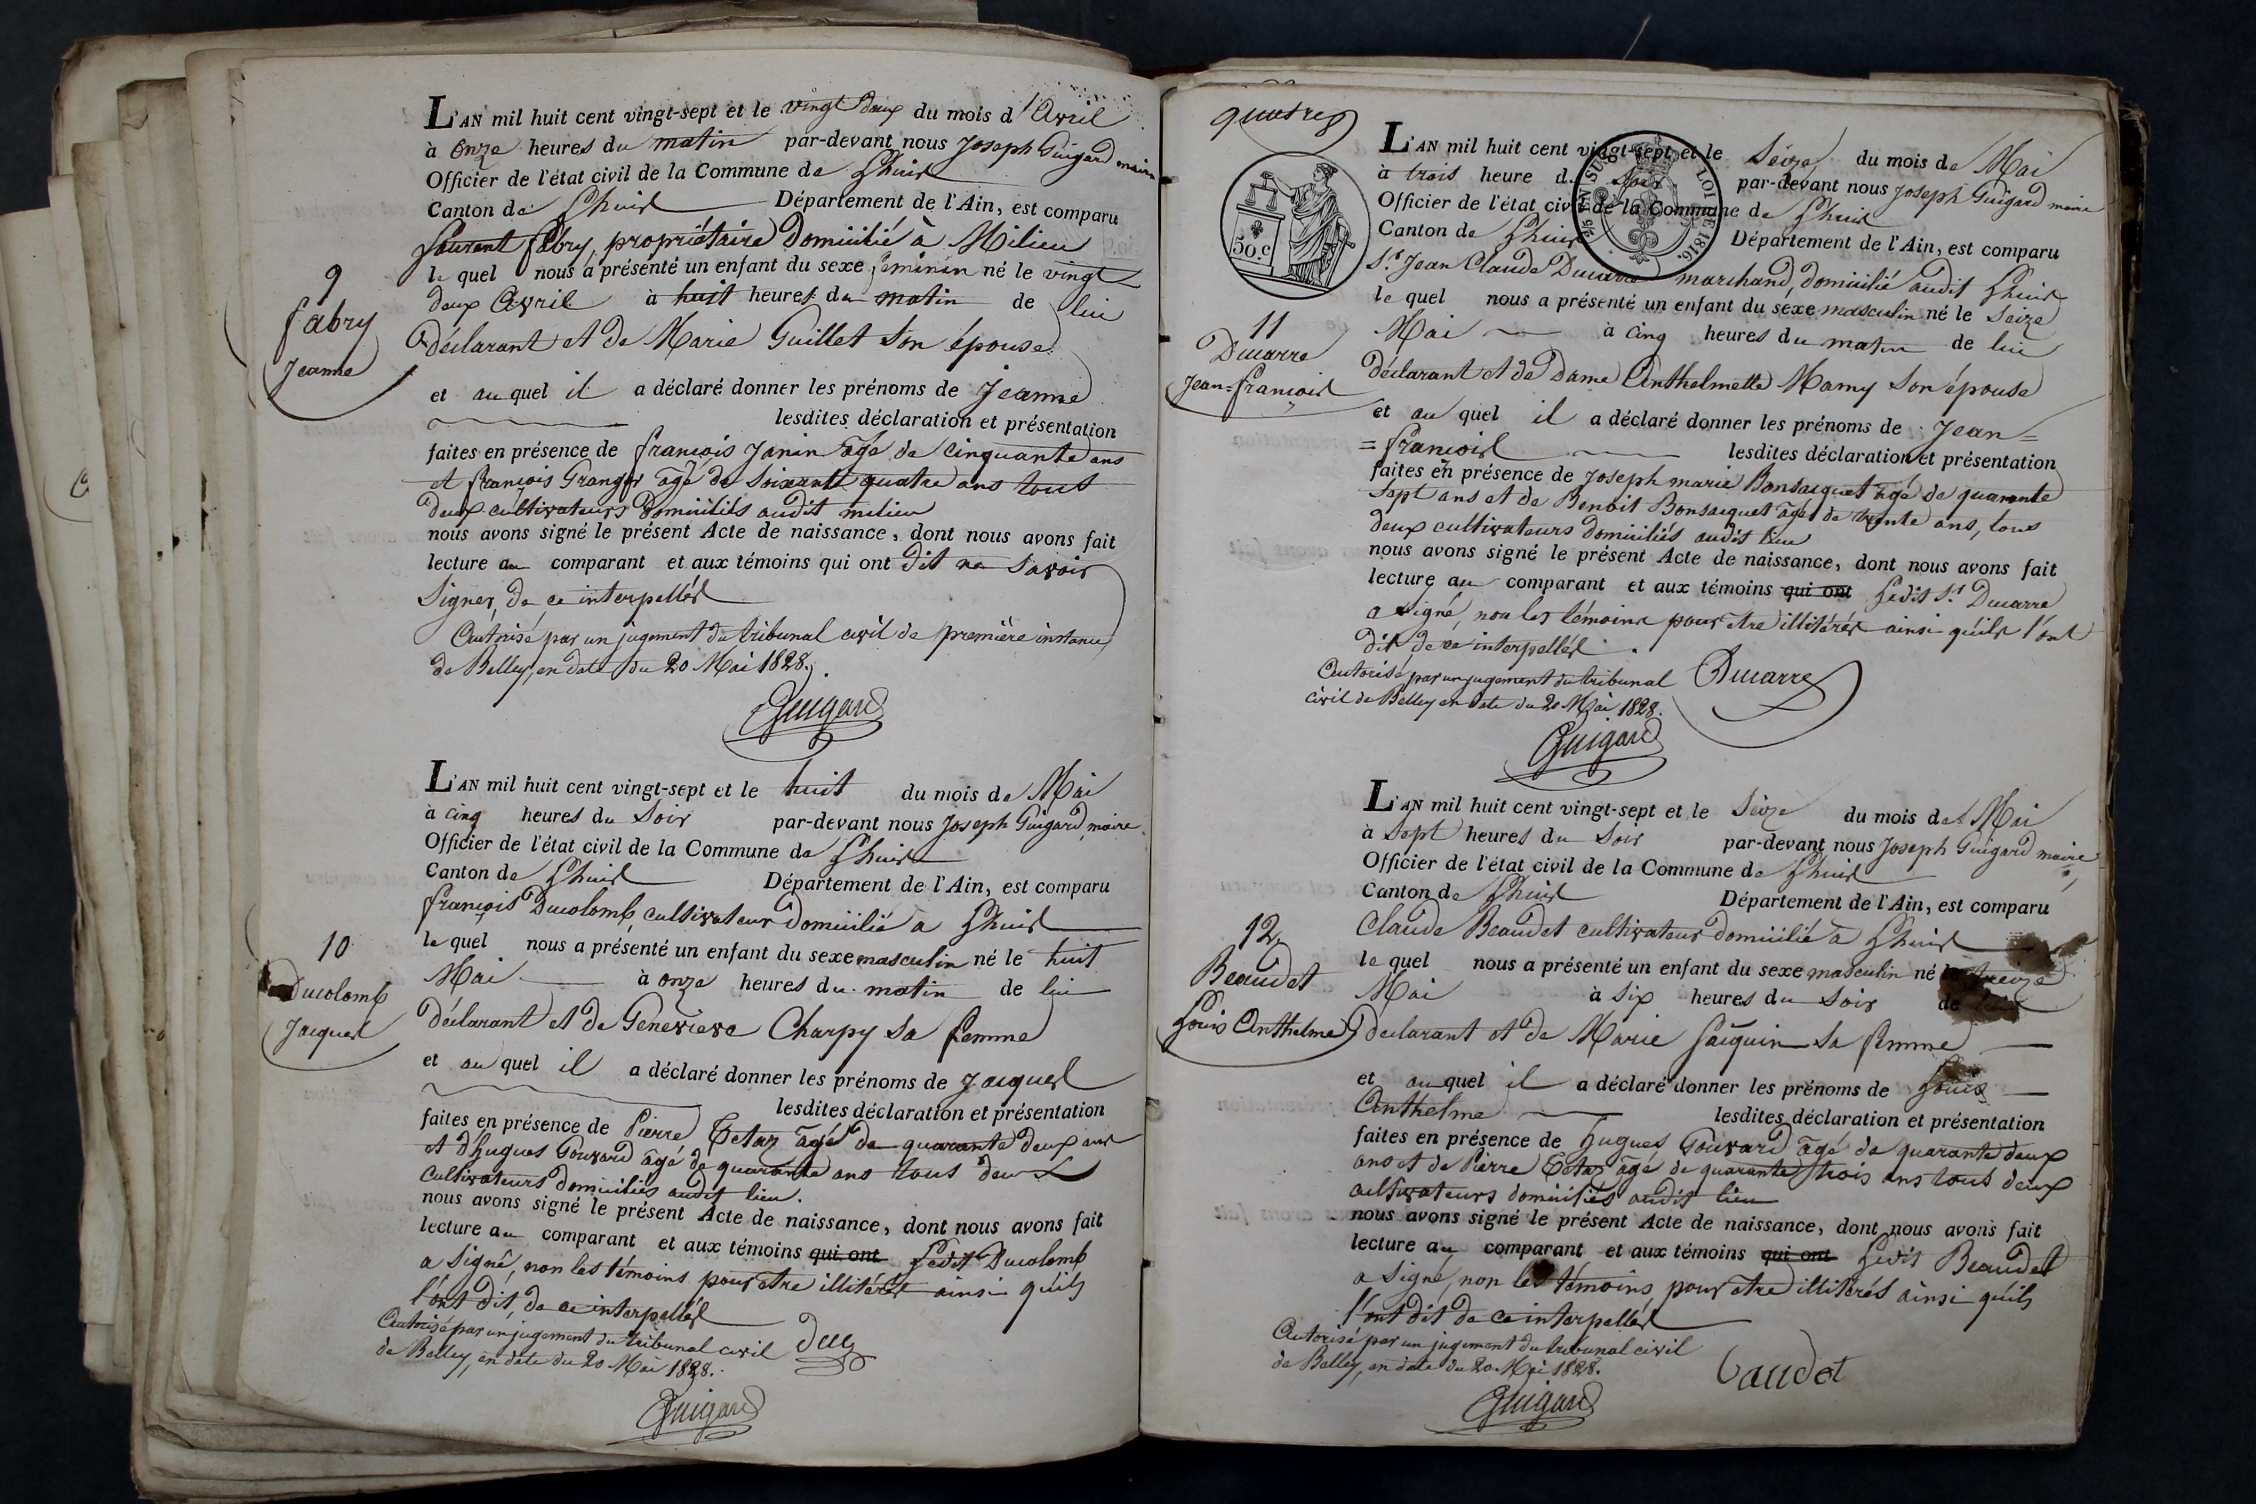 L'AN mil huit cent vingt-sept et le vingt deux du mois d'Avril
à onze heures du matin par-devant nous Joseph Guigard maire
Officier de l'état civil de la Commune de Lhuis
Canton de Lhuis Département de l'Ain, est comparu
Laurent fabry, propriétaire domicilié à Milieu
le quel nous a présenté un enfant du sexe feminin né le vingt
deux Avril à huit heures du matin de lui
déclarant et de Marie Guillet son épouse
et au quel il a déclaré donner les prénoms de Jeanne
lesdites déclaration et présentation
faites en présence de françois Janin âgé de cinquante ans
et françois Granger âgé de soixante quatre ans tous
deux cultivateurs domiciliés audit milieu
nous avons signé le présent Acte de naissance, dont nous avons fait
lecture au comparant et aux témoins qui ont dit ne savoir
signer, de ce interpellés
Autorisé par un jugement du tribunal civil de première instance
de Belley, en date du 20 Mai 1828.
Guigard
9
fabry
Jeanne
L'AN mil huit cent vingt-sept et le huit du mois de Mai
à cinq heures du soir par-devant nous Joseph Guigard, maire
Officier de l'état civil de la Commune de Lhuis
Canton de Lhuis Département de l'Ain, est comparu
françois Ducolomb, cultivateur domicilié a Lhuis
le quel nous a présenté un enfant du sexe masculin né le huit
Mai à onze heures du matin de lui
déclarant et de Genevieve Charpy sa femme
et au quel il a déclaré donner les prénoms de Jacques
lesdites déclaration et présentation
faites en présence de Pierre Tetaz âgé de quarante deux ans
et d'hugues Gouvard âgé de quarante ans tous deux
cultivateurs domiciliés audit lieu.
nous avons signé le présent Acte de naissance, dont nous avons fait
lecture au comparant et aux témoins qui ont Ledit Ducolomb
a signé, non les témoins pour etre illitérés ainsi qu'ils
l'ont dit, de ce interpellés
Autorisé par un jugement du tribunal civil
de Belley, en date du 20 Mai 1828.
Guigard
10
Ducolomb
Jacques
quatre
50.c
EN SUS
LOI DE 1816.
L'AN mil huit cent vingt-sept et le Seize du mois de Mai
à trois heure d. soir par-devant nous Joseph Guigard maire
Officier de l'état civil de la Commune de Lhuis
Canton de Lhuis Département de l'Ain, est comparu
S.r Jean Claude Ducarre marchand, domicilié audit Lhuis
le quel nous a présenté un enfant du sexe masculin né le Seize
Mai à cinq heures du matin de lui
déclarant et de Dame Anthelmette Mamy son épouse
et au quel il a déclaré donner les prénoms de Jean=
=françois lesdites déclaration et présentation
faites en présence de Joseph marie Bonsacquet âgé de quarante
sept ans et de Benoit Bonsacquet âgé de trente ans, tous
deux cultivateurs domiciliés audit lieu
nous avons signé le présent Acte de naissance, dont nous avons fait
lecture au comparant et aux témoins qui ont Ledit S.r Ducarre
a signé, non les témoins pour etre illitérés ainsi qu'ils l'ont
dit de ce interpellés.
Autorisé par un jugement du tribunal
civil de Belley en date du 20 Mai 1828.
Ducarre
Guigard
11
Ducarre
Jean=françois
L'AN mil huit cent vingt-sept et le Seize du mois de Mai
à sept heures du soir par-devant nous Joseph Guigard maire
Officier de l'état civil de la Commune de Lhuis
Canton de Lhuis Département de l'Ain, est comparu
Claude Beaudet cultivateur domicilié à Lhuis
le quel nous a présenté un enfant du sexe masculin né le
Mai à six heures du soir de lui
declarant et de Marie Jacquin sa femme
et au quel il a déclaré donner les prénoms de Louis
Anthelme lesdites déclaration et présentation
faites en présence de hugues Gouvard âgé de quarante deux
ans et de Pierre Tetaz âgé de quarante trois ans tous deux
cultivateurs domiciliés audit lieu
nous avons signé le présent Acte de naissance, dont nous avons fait
lecture au comparant et aux témoins qui ont Ledit Beaudet
a signé, non les témoins pour etre illitérés ainsi qu'ils
l'ont dit de ce interpellés
Autorisé par un jugement du tribunal civil
de Belley, en date du 20 Mai 1828.
Baudet
Guigard
12
Beaudet
Louis Anthelme